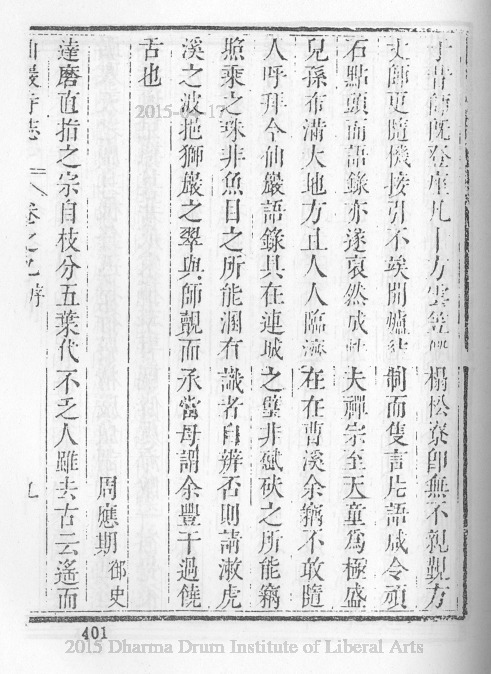 于昔師既登座凡十方雲笠榻松寮卽無不親覲方
丈師更隨機接引不竢開爐結制而隻言片語咸令頑
石點頭而語錄亦遂裒然成帙夫禪宗至天童為極盛
兒孫布滿大地方且人人臨濟在在曹溪余竊不敢隨
人呼拜今仙巖語錄具在連城之璧非碔砆之所能竊
照乘之珠非魚目之所能溷有識者自辨否則請漱虎
溪之波挹獅巖之翠與師覿面承當毋謂余豐干過饒
舌也
周應期 御史
達磨直指之宗自枝分五葉代不乏人雖去古云遙而
仙巖寺志 卷之九 序 九
401
2015 Dharma Drum Institute of Liberal Arts